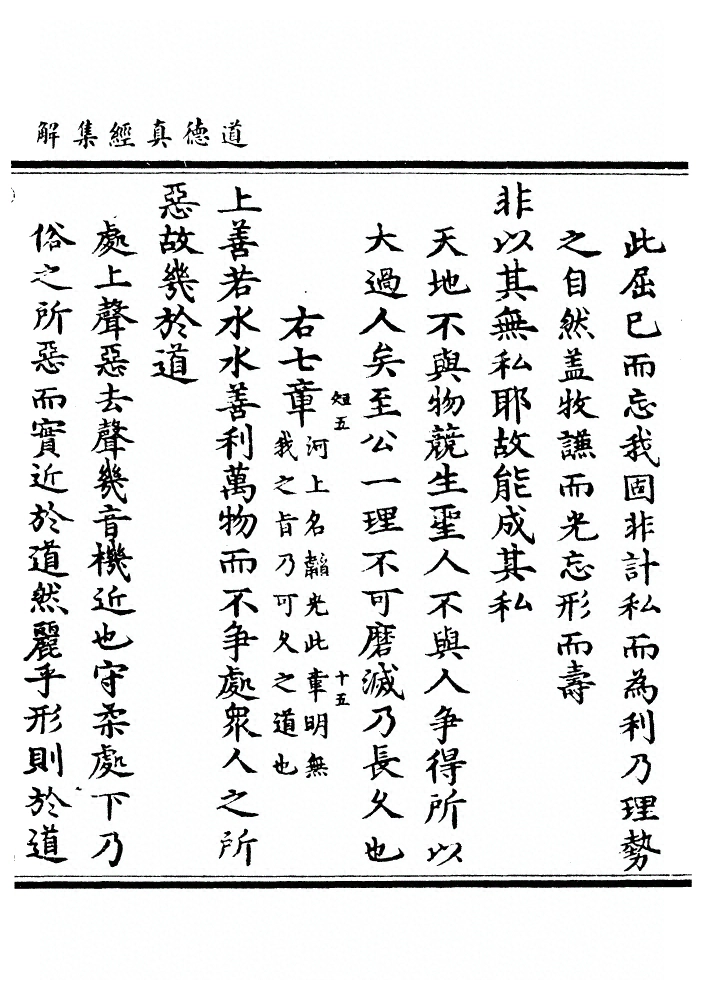 道德真經集解
此屈己而忘我固非計私而為利乃理勢
之自然盖牧謙而光忘形而壽
非以其無私耶故能成其私
天地不與物競生聖人不與人争得所以
大過人矣至公一理不可磨滅乃長久也
右七章
河上名韜光此章明無
我之旨乃可久之道也
上善若水水善利萬物而不争處眾人之所
惡故幾於道
處上聲惡去聲幾音機近也守柔處下乃
俗之所惡而實近於道然麗乎形則於道
短五
十五